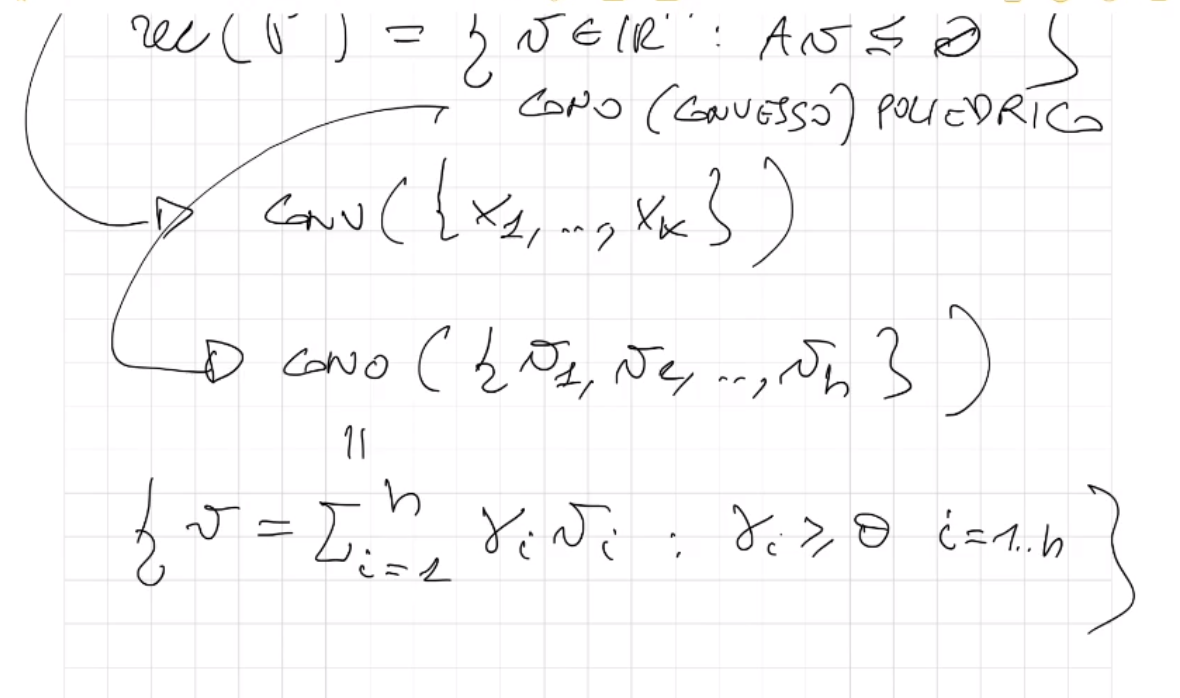 rec(P) = { v ∈ ℝⁿ : Av ≤ 0 }
CONO (CONVESSO) POLIEDRICO
CONV({x₁, ..., xₖ})
CONO({v₁, v₂, ..., vₕ})
||
{ v = Σᵢ₌₁ʰ γᵢvᵢ : γᵢ ≥ 0 i=1..h }